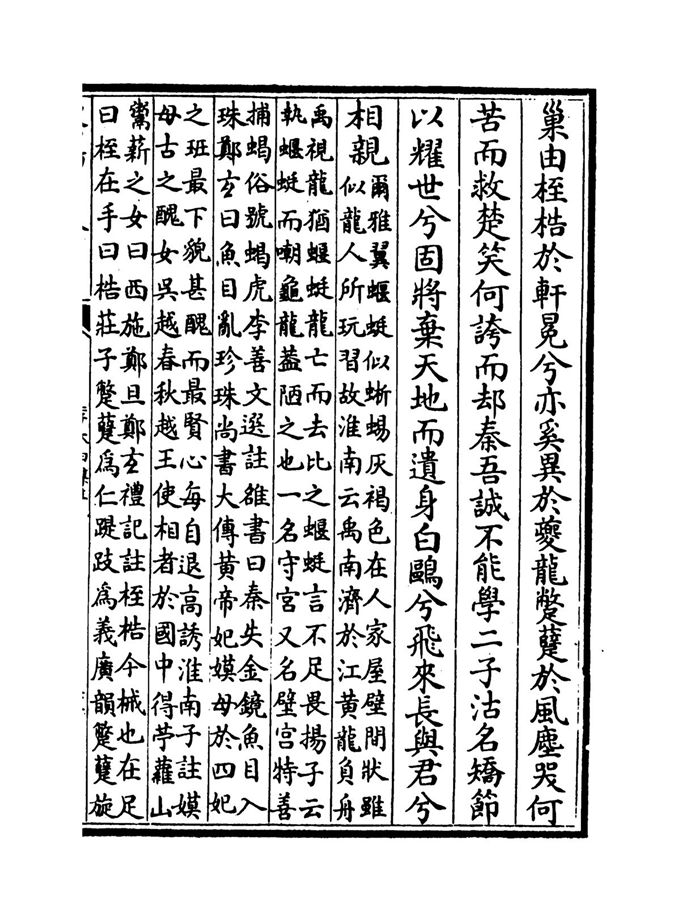 巢由桎梏於軒冕兮亦奚異於夔龍蹩躠於風塵哭何
苦而救楚笑何誇而却秦吾誠不能學二子沽名矯節
以耀世兮固將棄天地而遺身白鷗兮飛來長與君兮
相親
爾雅翼蝘蜓似蜥蜴灰褐色在人家屋壁間狀雖
似龍人所玩習故淮南云禹南濟於江黄龍負舟
禹視龍猶蝘蜓龍亡而去比之蝘蜓言不足畏揚子云
執蝘蜓而嘲龜龍葢陋之也一名守宮又名壁宮特善
捕蝎俗號蝎虎李善文選註雒書曰秦失金鏡魚目入
珠鄭玄曰魚目亂珍珠尚書大傳黄帝妃嫫母於四妃
之班最下貌甚醜而最賢心每自退高誘淮南子註嫫
母古之醜女吳越春秋越王使相者於國中得苧蘿山
鬻薪之女曰西施鄭旦鄭玄禮記註桎梏今械也在足
曰桎在手曰梏莊子蹩躠爲仁踶跂爲義廣韻蹩躠旋